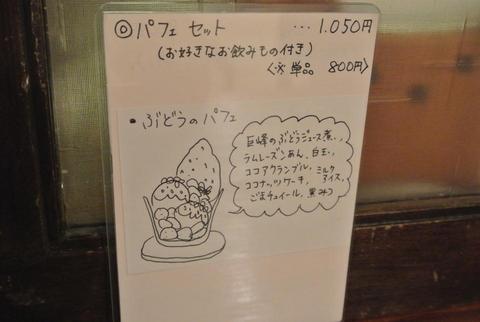 ◎パフェ セット ･･･1.050円
(お好きなお飲みもの付き)
〈※単品 800円〉
・ぶどうのパフェ
巨峰のぶどうジュース煮、
ラムレーズンあん、白玉、
ココアクランブル、ミルクアイス、
ココナッツケーキ、
ごまチュイール、黒みつ